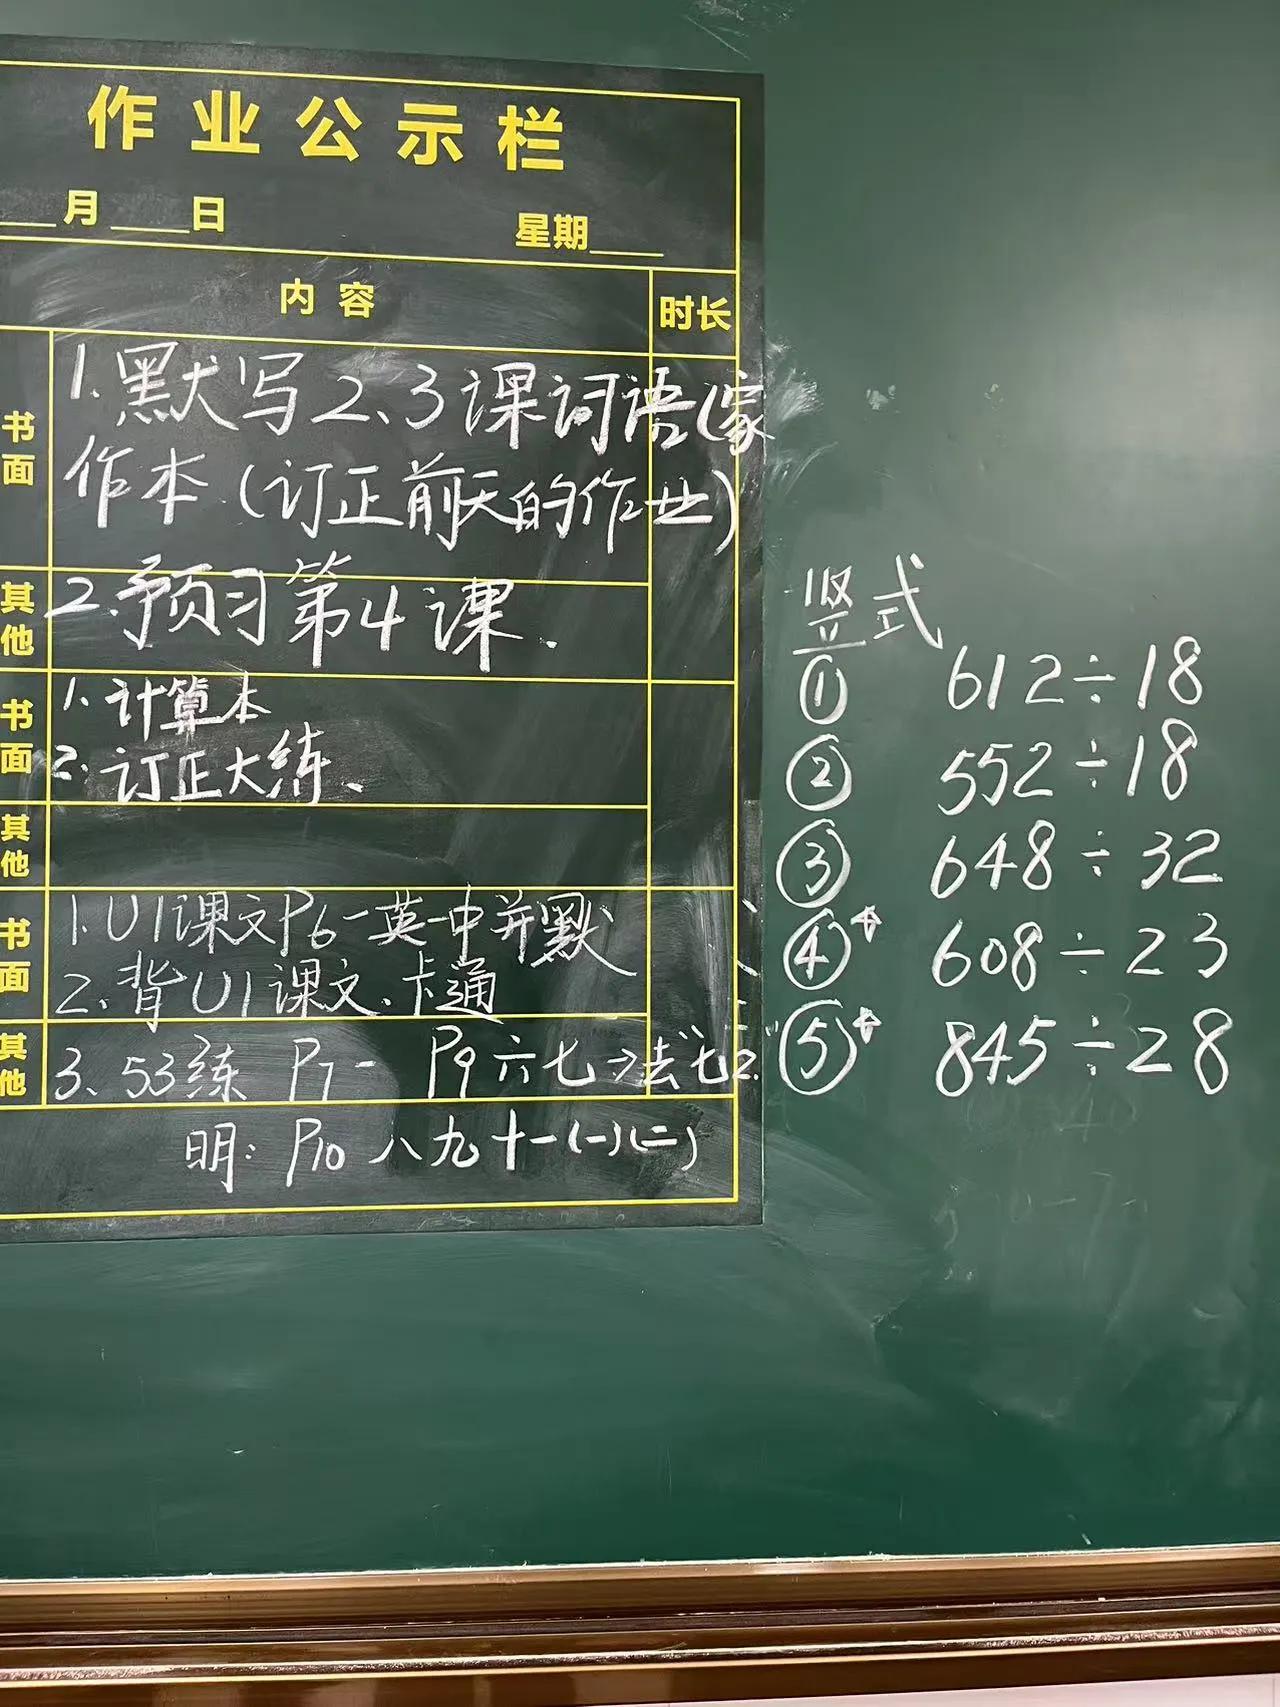 作业公示栏
月 日 星期
内容 时长
书面
1.默写2、3课词语(家
作本(订正前天的作业)
其他
2.预习第4课.
书面
1.计算本
2.订正大练、
其他
书面
1.U1课文P6一英一中并默
2.背U1课文、卡通
其他
3、53练 P7- P9六七→去"七2."
明: P10 八九十一(一)(二)
竖式
① 612÷18
② 552÷18
③ 648÷32
④ 608÷23
⑤ 845÷28